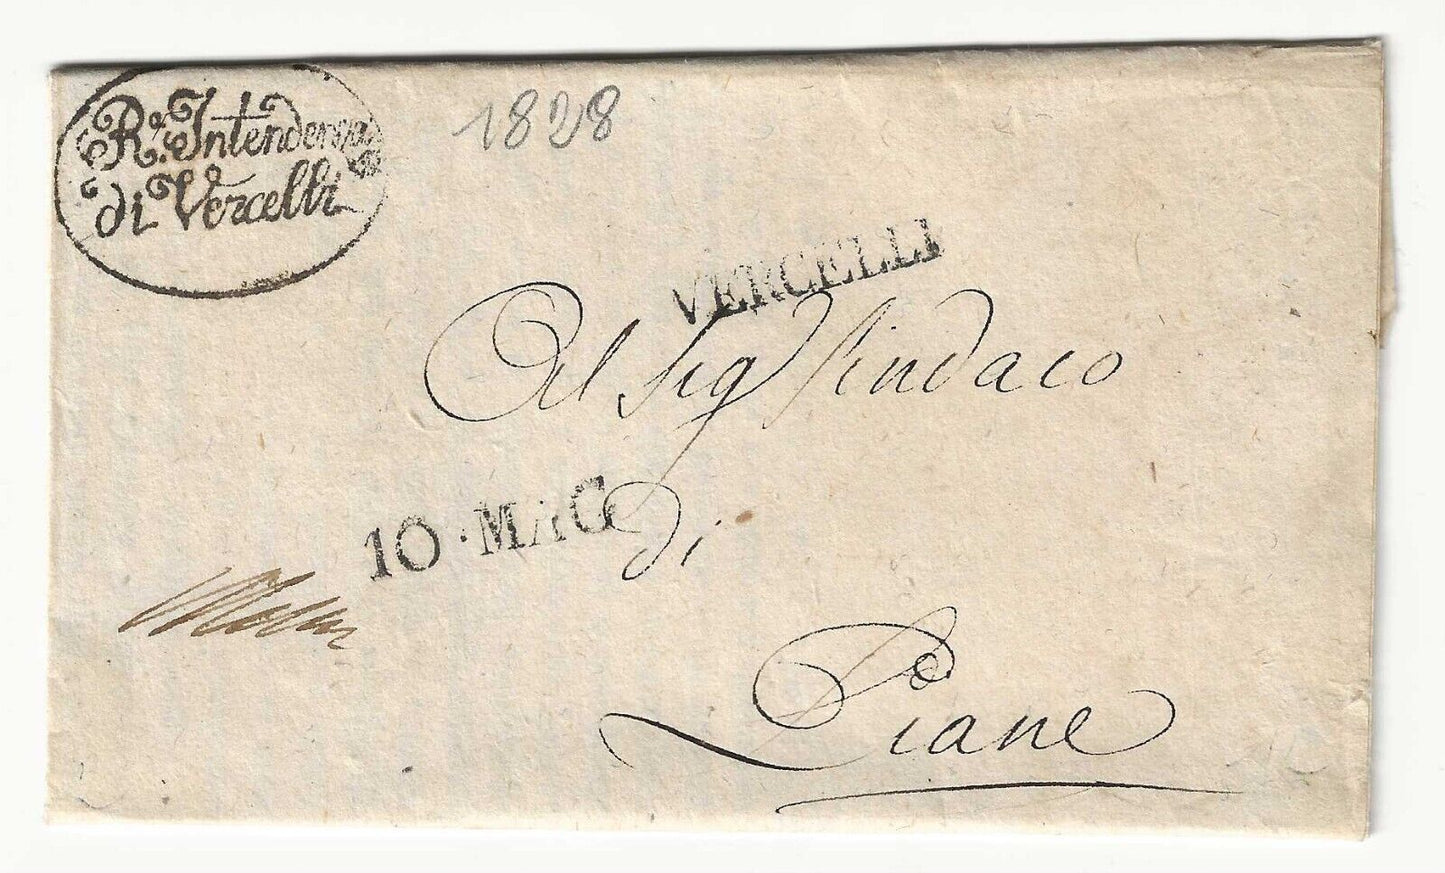 Ra. Intendenza
di Vercelli
1828
VERCELLI
Al Sig Sindaco
10 · MAG
di
Piane